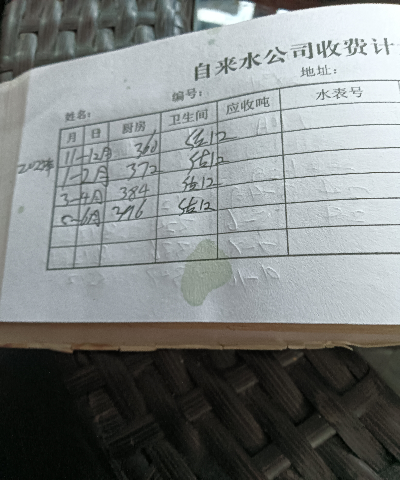 自来水公司收费计
姓名: 编号: 地址:
月 日 厨房 卫生间 应收吨 水表号
11-12月 360 结12
2023年 1-2月 372 结12
3-4月 384 结12
5-6月 396 结12